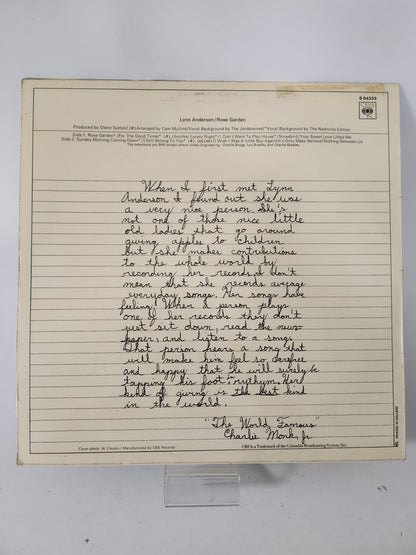 S 64333
CBS
Lynn Anderson/Rose Garden
Produced by Glenn Sutton/(#)Arranged by Cam Mullins/Vocal Background by The Jordanaires/*Vocal Background by The Nashville Edition
Side 1. Rose Garden*/For The Good Times* (#)/Another Lonely Night*/I Don't Want To Play House*/Snowbird/Your Sweet Love Lifted Me
Side 2. Sunday Morning Coming Down*/I Still Belong To You* (#) (ASCAP)/I Wish I Was A Little Boy Again/It's Only Make Believe/Nothing Between Us
The selections are BMI except where noted.-Engineering: Charlie Bragg, Lou Bradley and Charlie Bradley
When I first met Lynn
Anderson I found out she was
a very nice person. She's
not one of those nice little
old ladies that go around
giving apples to children
but she makes contributions
to the whole world by
recording her records. I don't
mean that she records average
everyday songs. Her songs have
feeling. When a person plays
one of her records they don't
just sit down, read the news-
paper, and listen to a song.
That person hears a song that
will make him feel so carefree
and happy that he will surely be
tapping his foot in rhythm. Her
kind of giving is the best kind
in the world.
"The World Famous"
Charlie Monk, Jr.
Cover photo: Al Clayton/ Manufactured by CBS Records
CBS is a Trademark of the Columbia Broadcasting System, Inc.
PRINTED IN HOLLAND